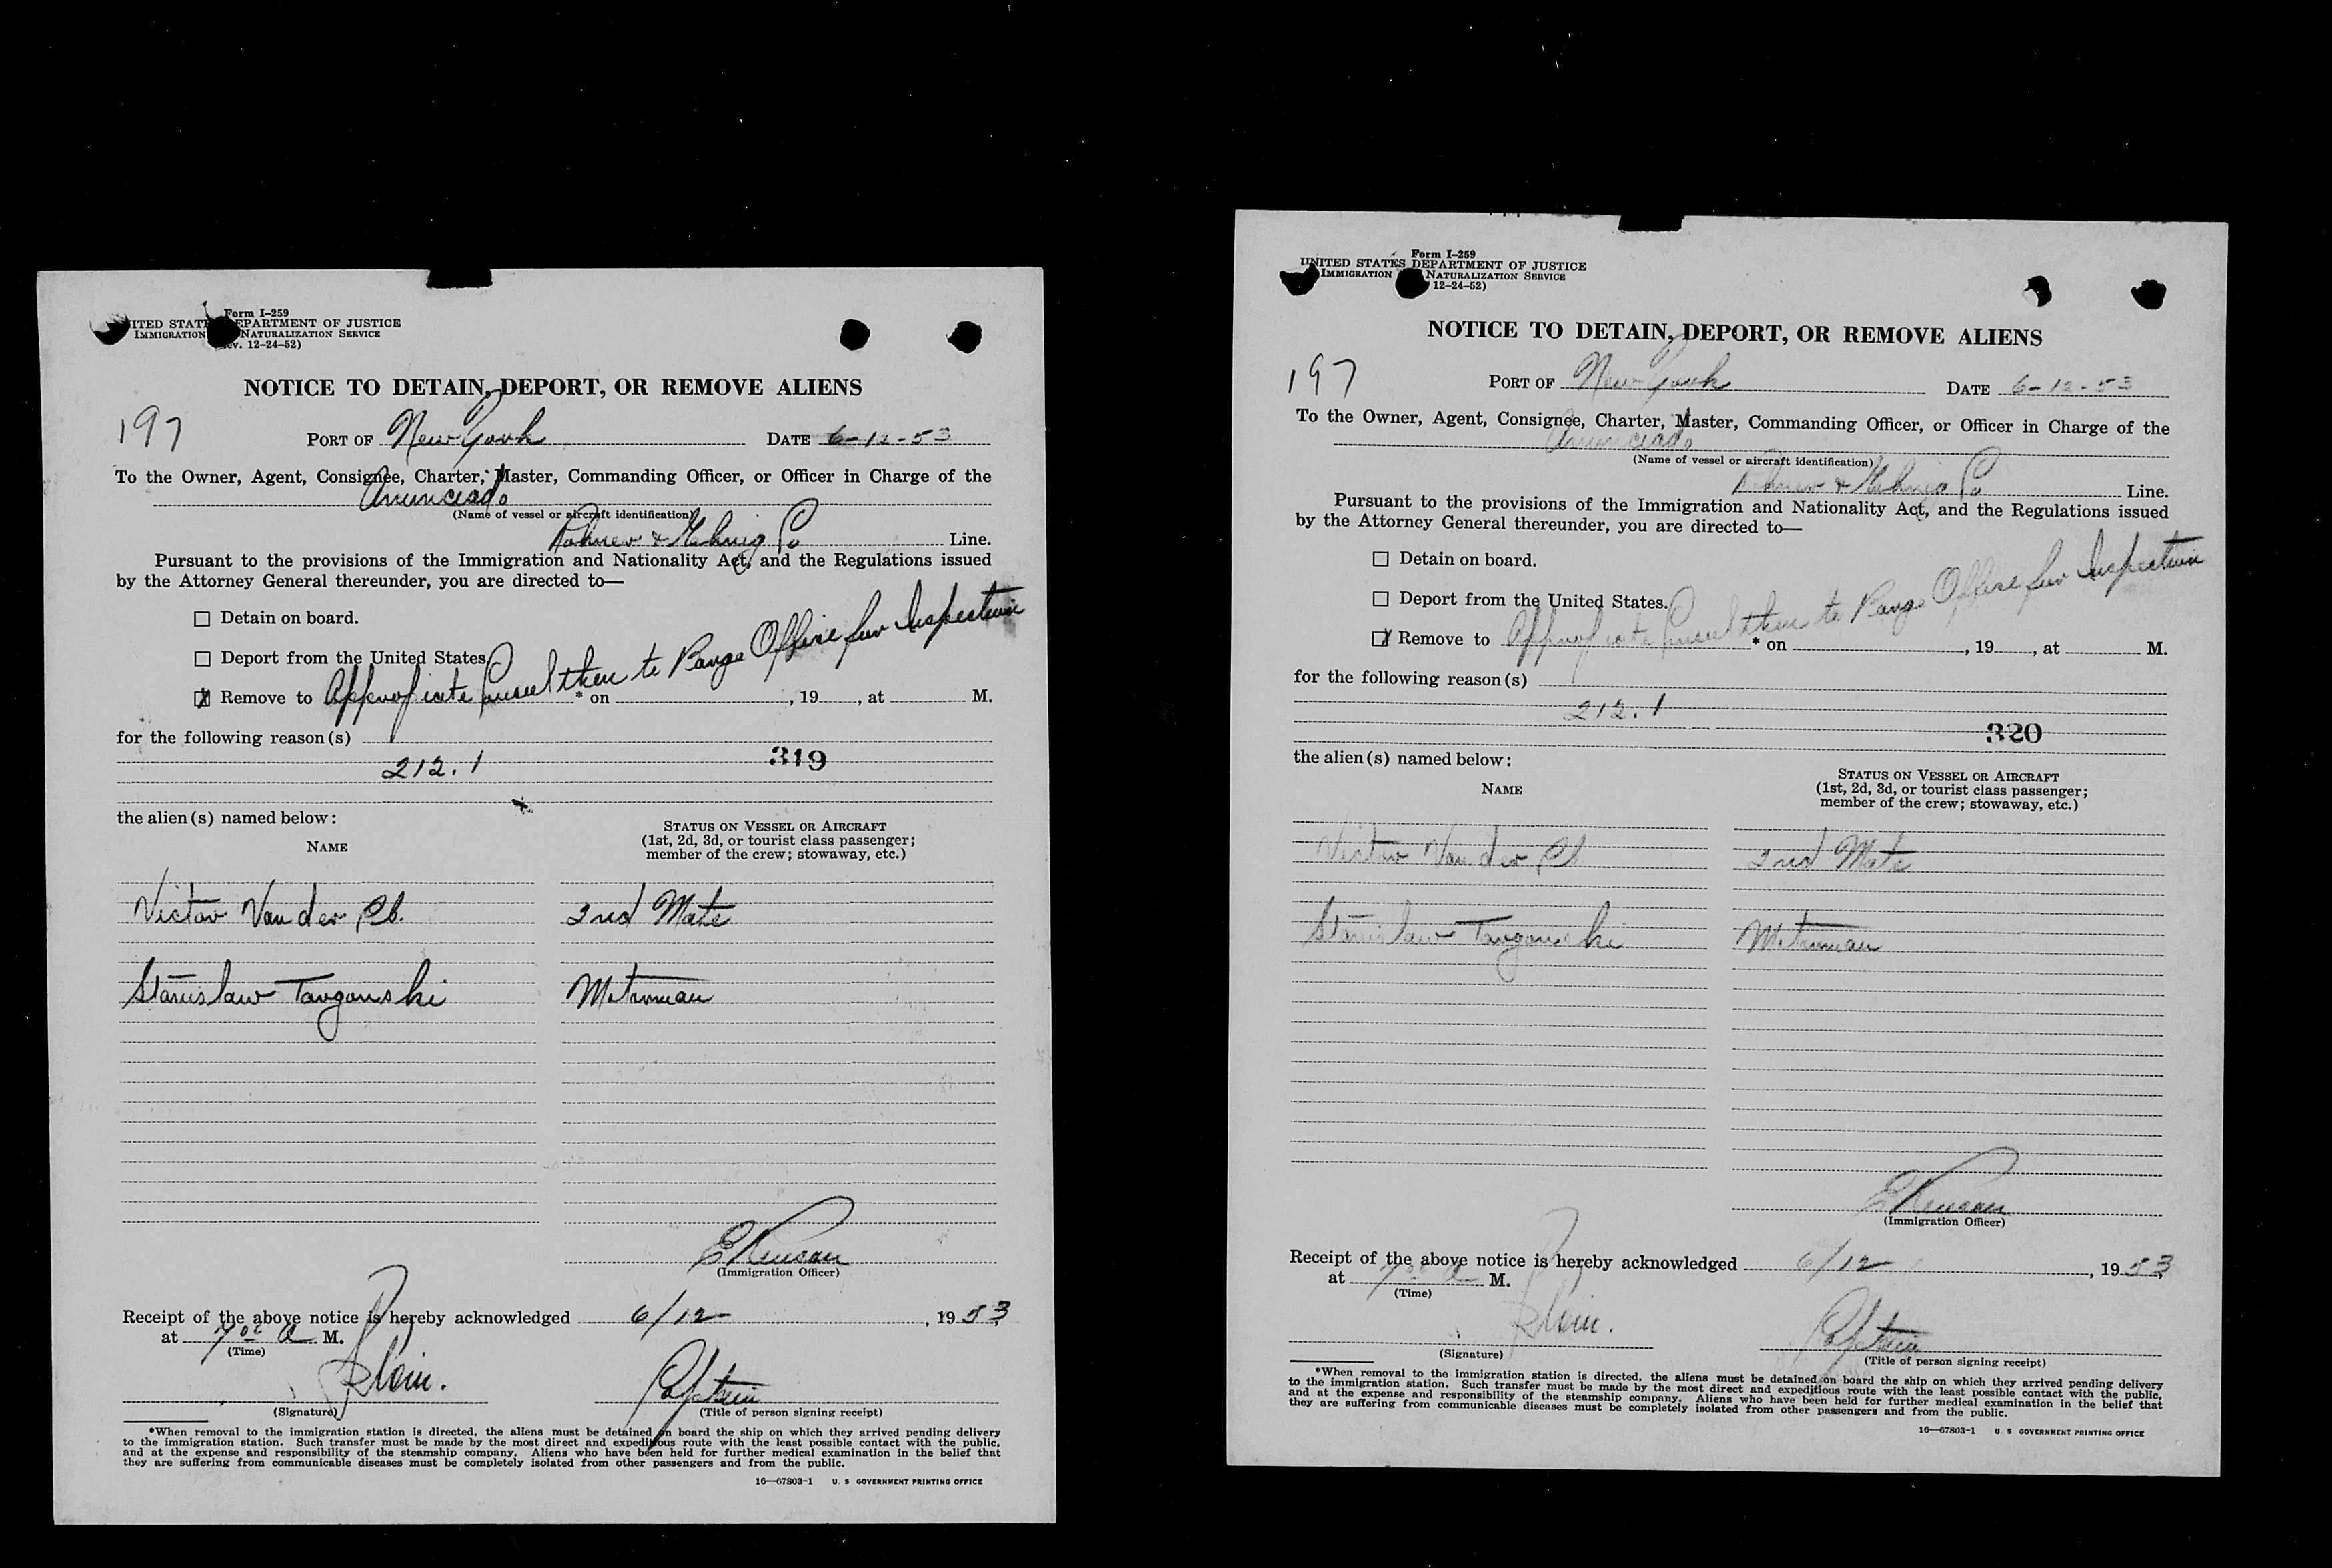 Form I-259
UNITED STATES DEPARTMENT OF JUSTICE
IMMIGRATION NATURALIZATION SERVICE
12-24-52)
NOTICE TO DETAIN, DEPORT, OR REMOVE ALIENS
197
PORT OF New York DATE 6-12-53
To the Owner, Agent, Consignee, Charter, Master, Commanding Officer, or Officer in Charge of the
Anunciado
(Name of vessel or aircraft identification)
& Co Line.
Pursuant to the provisions of the Immigration and Nationality Act, and the Regulations issued
by the Attorney General thereunder, you are directed to—
Detain on board.
Deport from the United States.
Remove to Appropriate Consul then to Barge Office for Inspection * on , 19 , at M.
for the following reason(s)
212.1
319
the alien(s) named below:
NAME
STATUS ON VESSEL OR AIRCRAFT
(1st, 2d, 3d, or tourist class passenger;
member of the crew; stowaway, etc.)
Victor Van der 2nd Mate
Stanislaw Motorman
(Immigration Officer)
Receipt of the above notice is hereby acknowledged 6/12 , 1953
at 7 00 A M.
(Time)
Captain
(Signature) (Title of person signing receipt)
*When removal to the immigration station is directed, the aliens must be detained on board the ship on which they arrived pending delivery
to the immigration station. Such transfer must be made by the most direct and expeditious route with the least possible contact with the public,
and at the expense and responsibility of the steamship company. Aliens who have been held for further medical examination in the belief that
they are suffering from communicable diseases must be completely isolated from other passengers and from the public.
16—67803-1 U. S GOVERNMENT PRINTING OFFICE
Form I-259
UNITED STATES DEPARTMENT OF JUSTICE
IMMIGRATION NATURALIZATION SERVICE
12-24-52)
NOTICE TO DETAIN, DEPORT, OR REMOVE ALIENS
197
PORT OF New York DATE 6-12-53
To the Owner, Agent, Consignee, Charter, Master, Commanding Officer, or Officer in Charge of the
Anunciado
(Name of vessel or aircraft identification)
& Co Line.
Pursuant to the provisions of the Immigration and Nationality Act, and the Regulations issued
by the Attorney General thereunder, you are directed to—
Detain on board.
Deport from the United States.
Remove to Appropriate Consul then to Barge Office for Inspection * on , 19 , at M.
for the following reason(s)
212.1
320
the alien(s) named below:
NAME
STATUS ON VESSEL OR AIRCRAFT
(1st, 2d, 3d, or tourist class passenger;
member of the crew; stowaway, etc.)
Victor Van der 2nd Mate
Stanislaw Motorman
(Immigration Officer)
Receipt of the above notice is hereby acknowledged 6/12 , 1953
at 7 00 A M.
(Time)
Captain
(Signature) (Title of person signing receipt)
*When removal to the immigration station is directed, the aliens must be detained on board the ship on which they arrived pending delivery
to the immigration station. Such transfer must be made by the most direct and expeditious route with the least possible contact with the public,
and at the expense and responsibility of the steamship company. Aliens who have been held for further medical examination in the belief that
they are suffering from communicable diseases must be completely isolated from other passengers and from the public.
16—67803-1 U. S GOVERNMENT PRINTING OFFICE